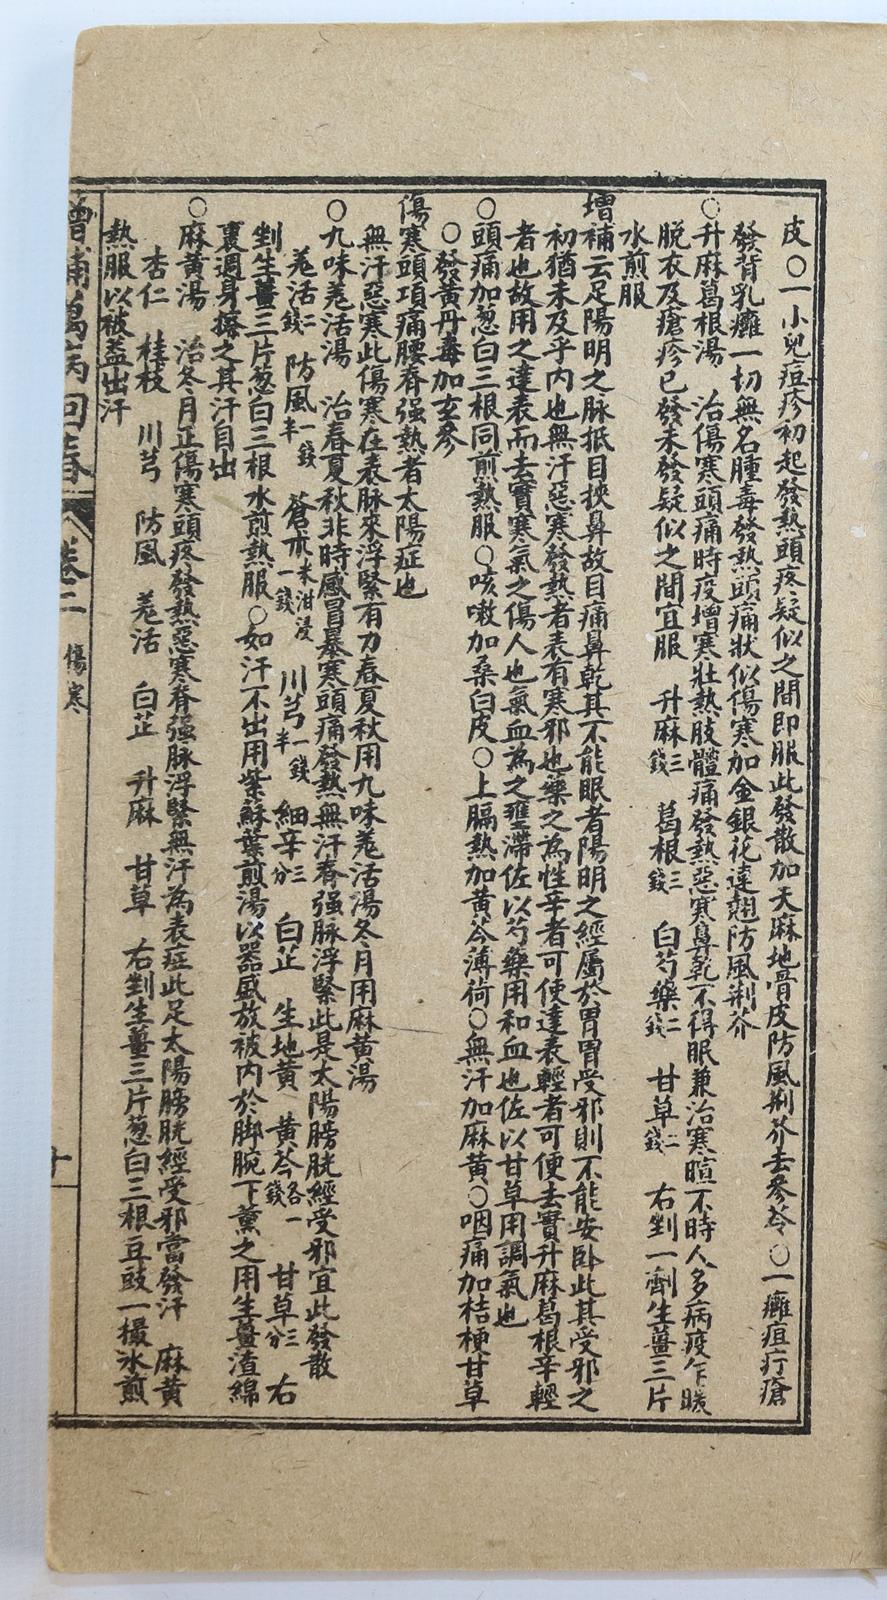 皮○一小兒痘疹初起發熱頭疼疑似之間即服此發散加天麻地骨皮防風荆芥去參苓○一癰疽疔瘡
發背乳癰一切無名腫毒發熱頭痛狀似傷寒加金銀花連翹防風荆芥
○升麻葛根湯 治傷寒頭痛時疫增寒壯熱肢體痛發熱惡寒鼻乾不得眠兼治寒暄不時人多病疫乍暖
脫衣及瘡疹已發未發疑似之間宜服 升麻三錢 葛根三錢 白芍藥二錢 甘草二錢 右剉一劑生薑三片
水煎服
增補云足陽明之脉抵目挾鼻故目痛鼻乾其不能眠者陽明之經屬於胃胃受邪則不能安卧此其受邪之
初猶未及乎内也無汗惡寒發熱者表有寒邪也藥之為性辛者可使達表輕者可使去實升麻葛根辛輕
者也故用之達表而去實寒氣之傷人也氣血為之壅滯佐以芍藥用和血也佐以甘草用調氣也
○頭痛加葱白三根同煎熱服○咳嗽加桑白皮○上膈熱加黄芩薄荷○無汗加麻黄○咽痛加桔梗甘草
○發黄丹毒加玄參
傷寒頭項痛腰脊强熱者太陽症也
無汗惡寒此傷寒在表脉來浮緊有力春夏秋用九味羌活湯冬月用麻黄湯
○九味羌活湯 治春夏秋非時感冒暴寒頭痛發熱無汗脊强脉浮緊此是太陽膀胱經受邪宜此發散
羌活二錢 防風一錢半 蒼朮米泔浸一錢 川芎一錢半 細辛三分 白芷 生地黄 黄芩各一錢 甘草三分 右
剉生薑三片葱白三根水煎熱服○如汗不出用紫蘇葉煎湯以器盛放被内於脚腕下薰之用生薑渣綿
裏週身擦之其汗自出
○麻黄湯 治冬月正傷寒頭疼發熱惡寒脊强脉浮緊無汗為表症此足太陽膀胱經受邪當發汗 麻黄
杏仁 桂枝 川芎 防風 羌活 白芷 升麻 甘草 右剉生薑三片葱白三根豆豉一撮水煎
熱服以被盖出汗
增補萬病回春 卷二 傷寒 十